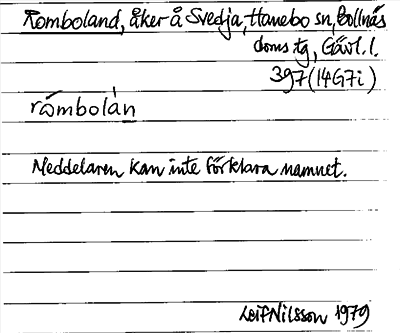 Romboland, åker å Svedja, Hanebo sn, Bollnäs
doms.tg, Gävl. l.
397 (14G7i)
rǻmbolàn
Meddelaren kan inte förklara namnet.
Leif Nilsson 1979